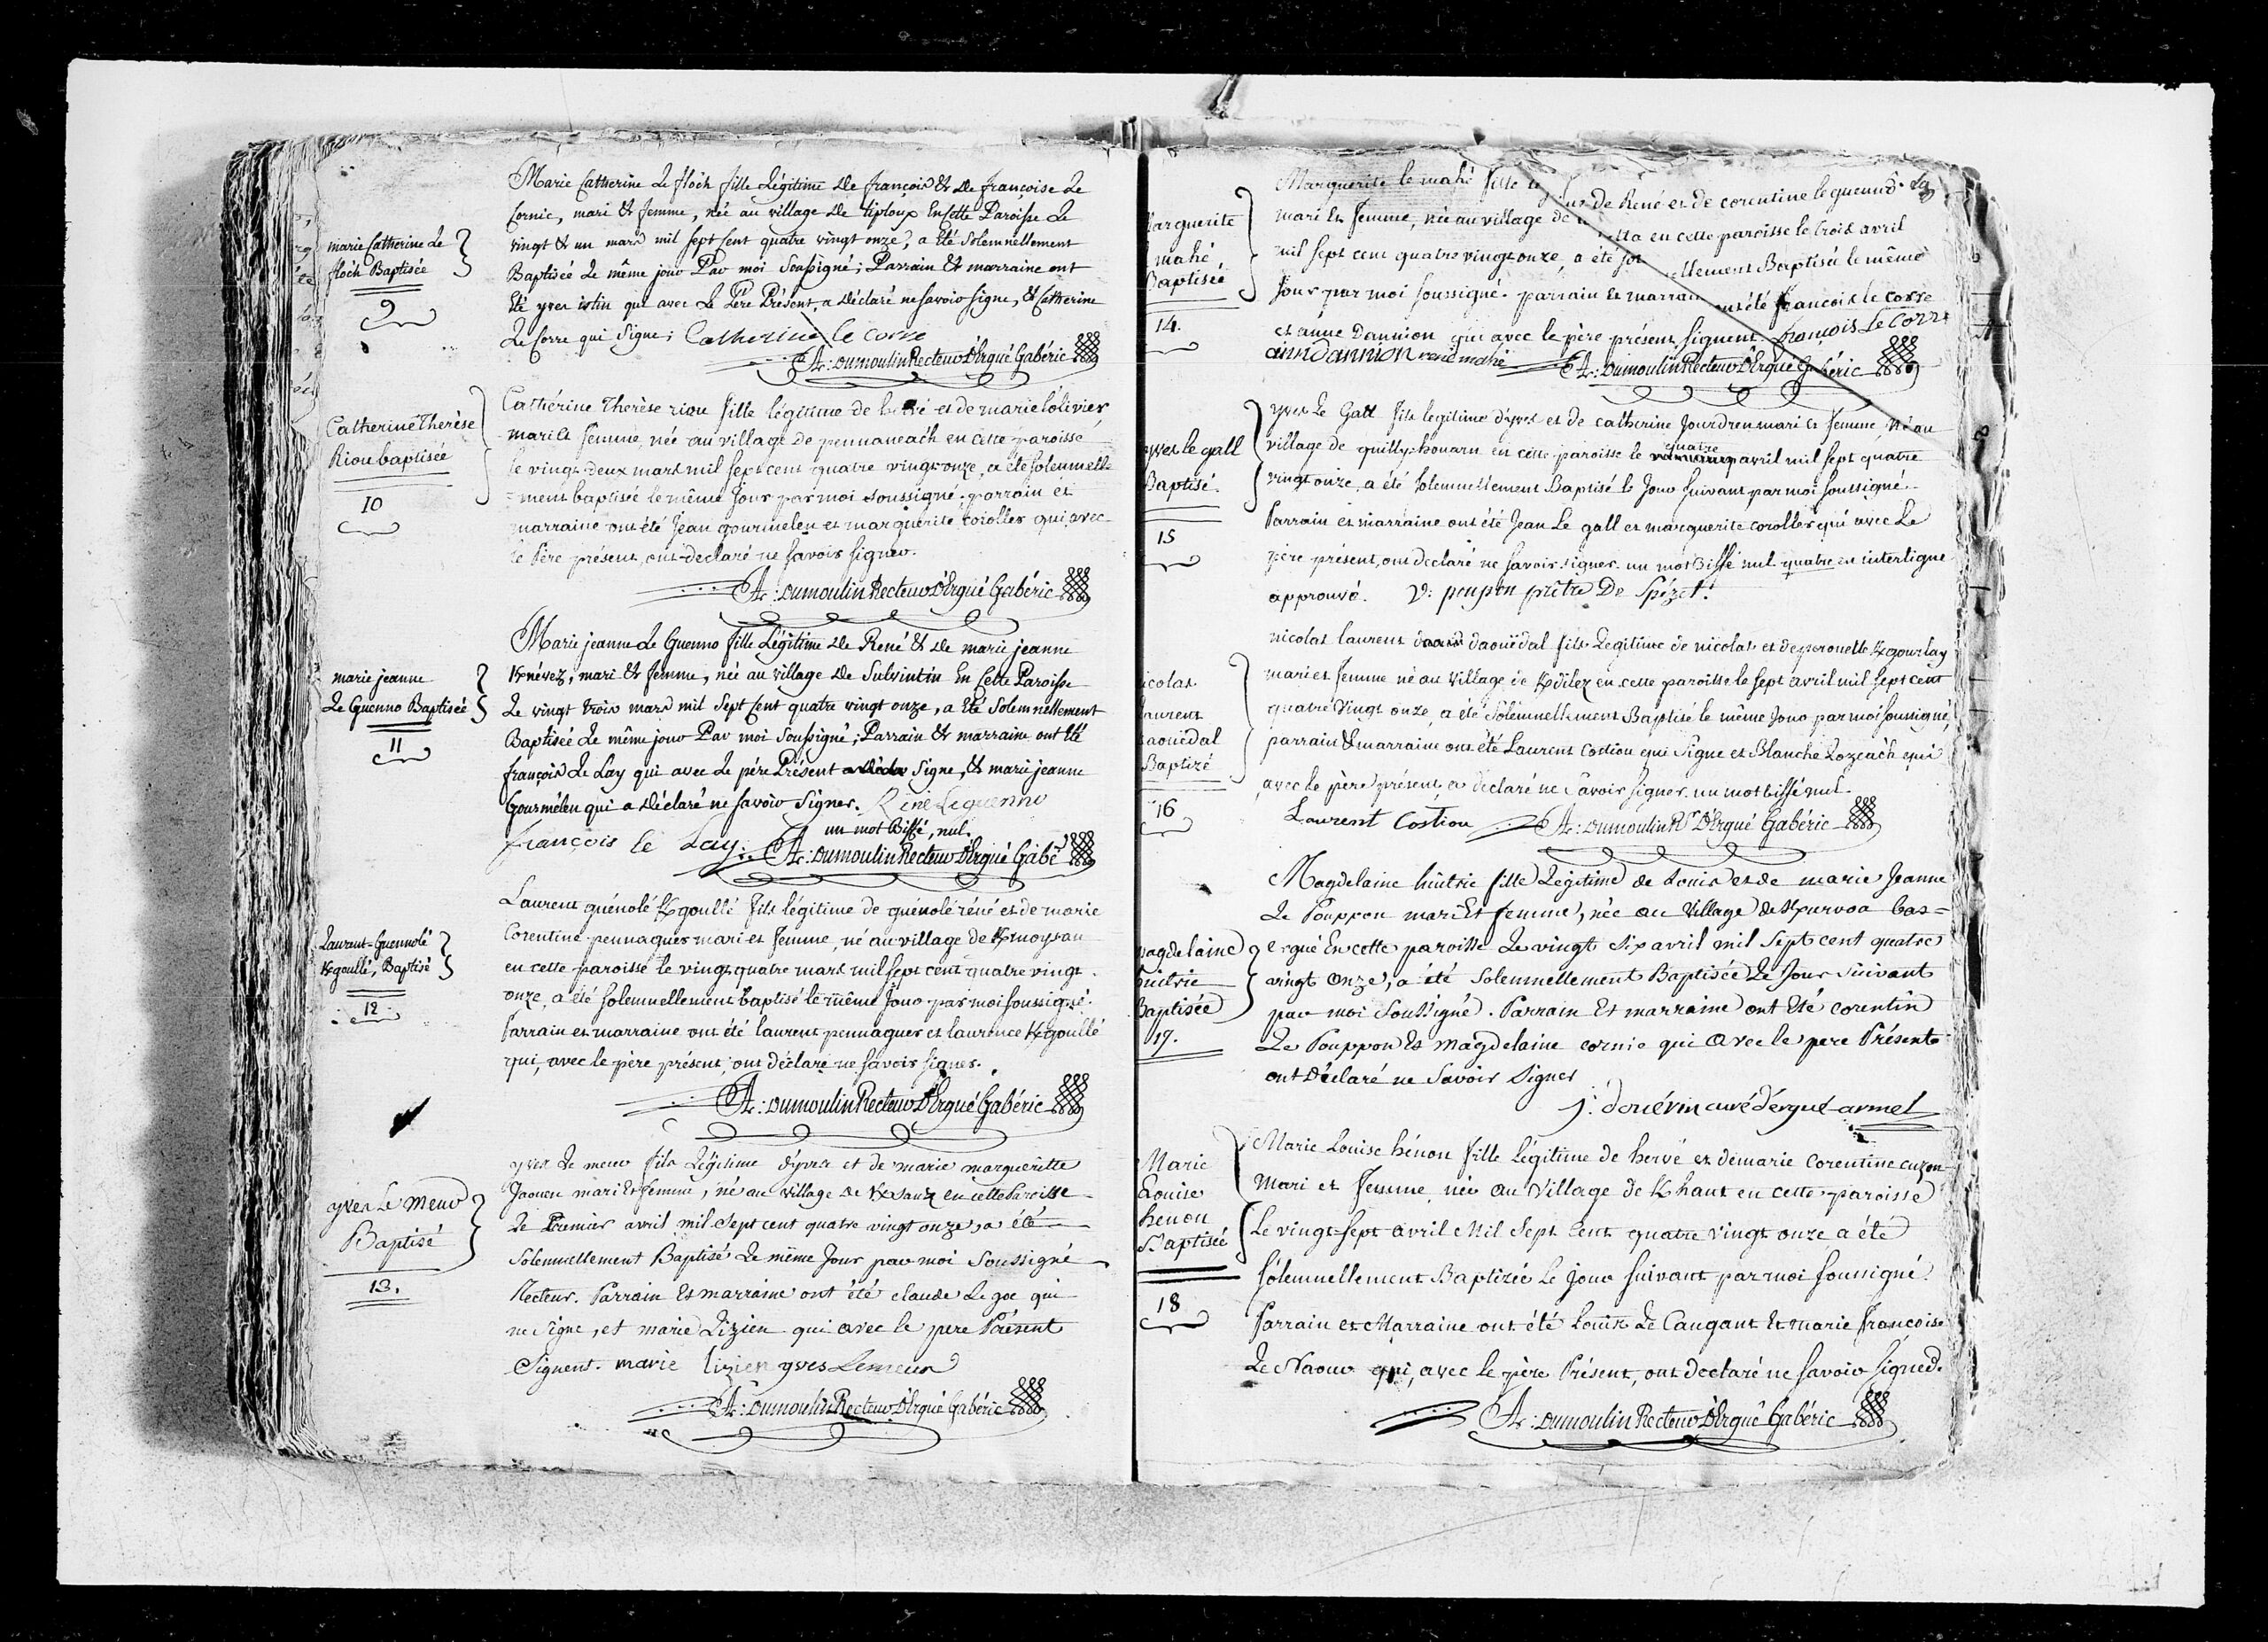 marie Catherine Le
floch Baptisée
9
Marie Catherine Le floch fille Légitime de françois & de françoise Le
Cornic, mari & femme, née au village de tiploux En Cette Paroisse Le
vingt & un mars mil sept Cent quatre vingt onze, a Eté Solemnellement
Baptisée Le même jour Par moi Soussigné; Parrain & marraine ont
Eté yves istin qui avec Le Pére Présent, a déclaré ne savoir signe, & Catherine
Le Corre qui Signe; Catherine le corre
A: Dumoulin Recteur D'Ergué Gabéric
Catherine Therèse
Riou baptisée
10
Cathérine Therèse riou fille légitime de et de marie lolivier,
mari et femme, née au village de pennaneac'h en cette paroisse
le vingt deux mars mil sept cent quatre vingt onze, a été solemnelle
=ment baptisée le même jour par moi soussigné. parrain et
marraine ont été Jean gourmelen et marguerite coroller qui, avec
le Père présent, ont declaré ne savoir signer.
A: Dumoulin Recteur D'Ergué Gabéric
marie jeanne
Le Guenno Baptisée
11
Marie jeanne Le Guenno fille Légitime de René & de marie jeanne
Knévez, mari & femme, née au village de Sulvintin En Cette Paroisse
Le vingt trois mars mil Sept Cent quatre vingt onze, a Eté Solemnellement
Baptisée Le même jour Par moi Soussigné; Parrain & marraine ont Eté
françois Le Lay qui avec Le pére Présent Signe, & marie jeanne
Gourmélen qui a déclaré ne savoir Signer. Rene Leguenno
un mot Biffé, nul.
françois le Lay. A: Dumoulin Recteur D'Ergué Gabé
Laurent-Guennolé
Kgoullé, Baptisé
12
Laurent guénolé Kgoullé fils légitime de guénolé réné et de marie
Corentine pennaguer mari et femme, né au village de Kmoysan
en cette paroisse le vingt quatre mars mil sept cent quatre vingt
onze, a été solemnellement baptisé le même Jour par moi soussigné.
Parrain et marraine ont été laurent pennaguer et laurence Kgoullé
qui, avec le père présent, ont déclaré ne savoir signer.
A: Dumoulin Recteur D'Ergué Gabéric
yves Le Meur
Baptisé
13.
yves Le meur fils Légitime d'yves et de marie margueritte
Jaouen mari Et femme, né au village de en cette Paroisse
Le Premier avril mil Sept cent quatre vingt onze, a été
Solemnellement Baptisé Le même Jour par moi Soussigné
Recteur. Parrain Et marraine ont été claude Le goc qui
ne Signe, et marie Lizien qui avec le pere Présent
Signent. marie lizien yves Lemeur
A: Dumoulin Recteur D'Ergué Gabéric
arguerite
mahé,
Baptisée
14.
Marguerite le mahé fille de René et de corentine le
mari et femme, née au village de en cette paroisse le trois avril
mil sept cent quatre vingt onze, a été Baptisée le même
Jour par moi soussigné. parrain et ont été francois le corre
et anne Dannion qui avec le père présent, signent. françois Le Corre
anne dannion rené mahé A: Dumoulin Recteur D'Ergué Gabéric
yves le gall
Baptisé.
15
yves Le Gall fils legitime d'yves et de catherine Jourdren mari et femme, Né au
village de quilly-houarn en cette paroisse le quatre avril mil sept quatre
vingt onze, a été solemnellement Baptisé le Jour suivant par moi soussigné.
Parrain et marraine ont été Jean Le gall et marguerite corolles qui avec Le
père présent, ont declaré ne savoir signer. un mot Biffé nul quatre en interligne
approuvé. V: poupon prêtre De Spézet.
icolas
laurent
aouëdal
Baptizé
16
nicolas laurent daouëdal fils Legitime de nicolas et de perouelle Kgourlay
mari et femme né au village de Kdilez en cette paroisse le sept avril mil sept cent
quatre Vingt onze, a été Solemnellement Baptisé le même Jour par moi soussigné,
parrain & marraine ont été Laurent Costiou qui Signe et Blanche Lozeac'h qui
avec le père présent, a déclaré ne Savoir signer. un mot biffé nul.
Laurent Costiou A: Dumoulin Rr D'Ergué Gabéric
agdelaine
huitric
Baptisée
17.
Magdelaine huitric fille Légitime de Louis et de marie Jeanne
Le Pouppon mari Et femme, née au Village de Kpurvoa bas=
ergué En cette paroisse Le vingt Six avril mil Sept cent quatre
vingt onze, a été Solemnellement Baptisée Le Jour suivant
par moi Soussigné. Parrain Et marraine ont Eté corentin
Le Pouppon Et magdelaine cornic qui avec le pere Présent
ont Déclaré ne Savoir Signer
J: douérin curé d'ergué-armel
Marie
Louise
henon
Baptisée
18
Marie Louise hénon fille Légitime de hervé et de marie Corentine cuzon
Mari et femme, née au Village de Khant en cette paroisse
Le vingt-sept avril Mil Sept Cent quatre vingt onze a été
solemnellement Baptizée Le jour suivant par moi soussigné.
Parrain et Marraine ont été Louis Le Caugant Et marie francoise
Le Naour qui, avec le père Présent, ont declaré ne savoir signer.
A: Dumoulin Recteur D'Ergué Gabéric